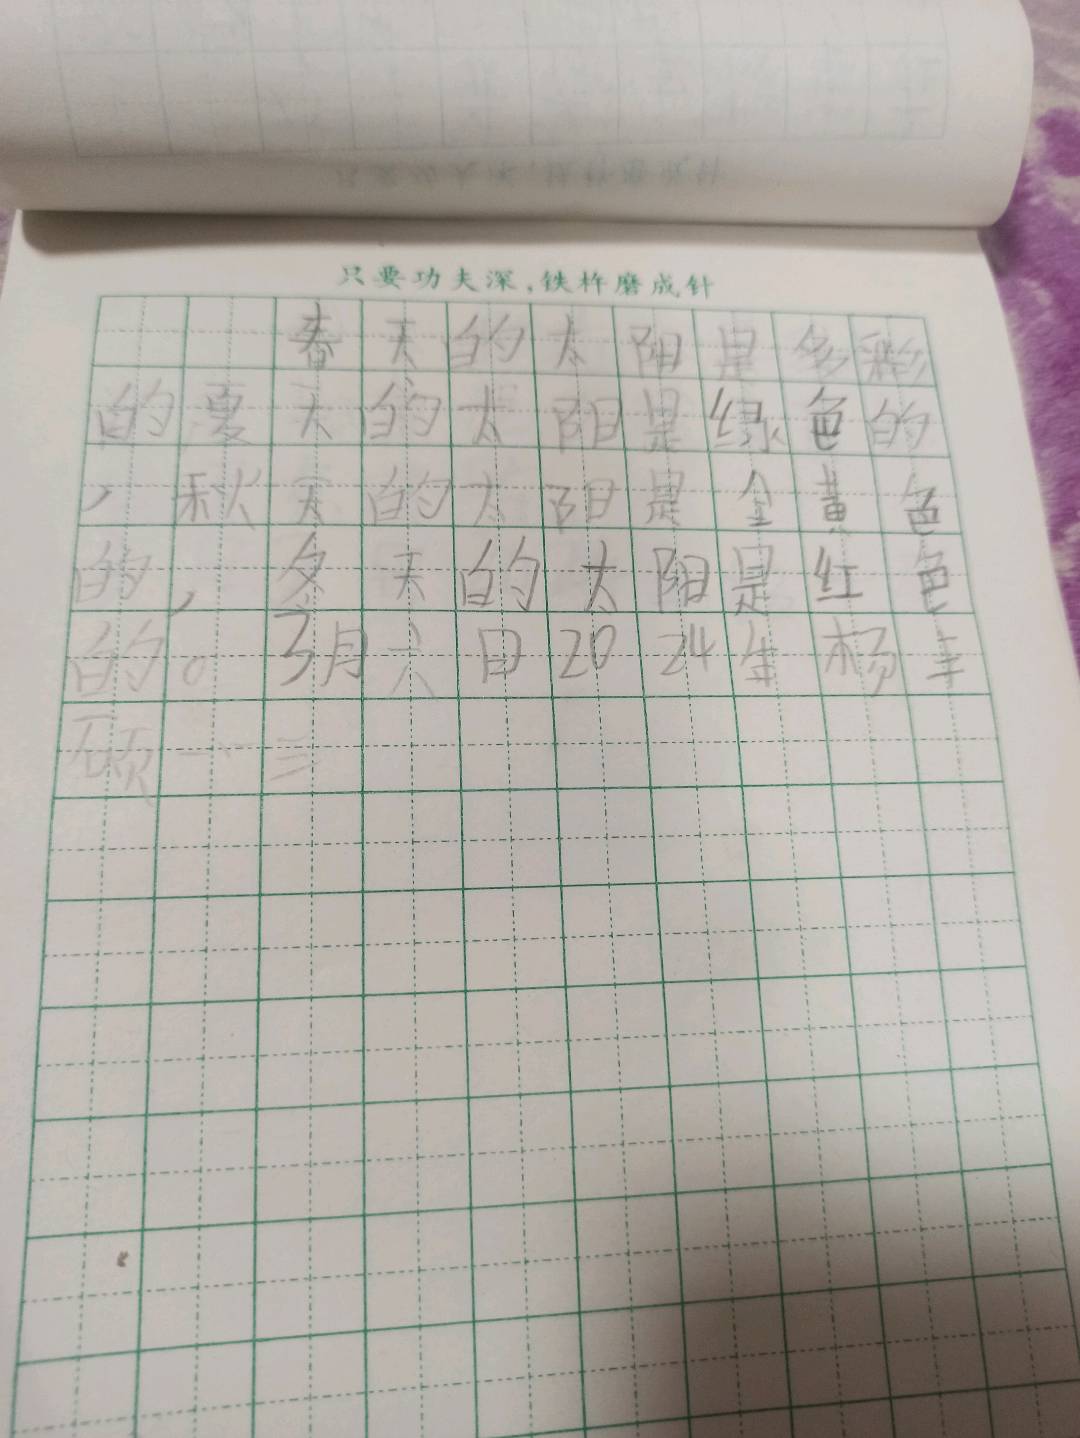 只要功夫深,铁杵磨成针
春天的太阳是多彩
的夏天的太阳是绿色的
,秋天的太阳是金黄色
的,冬天的太阳是红色
的。3月六日2024年杨丰
硕一、三